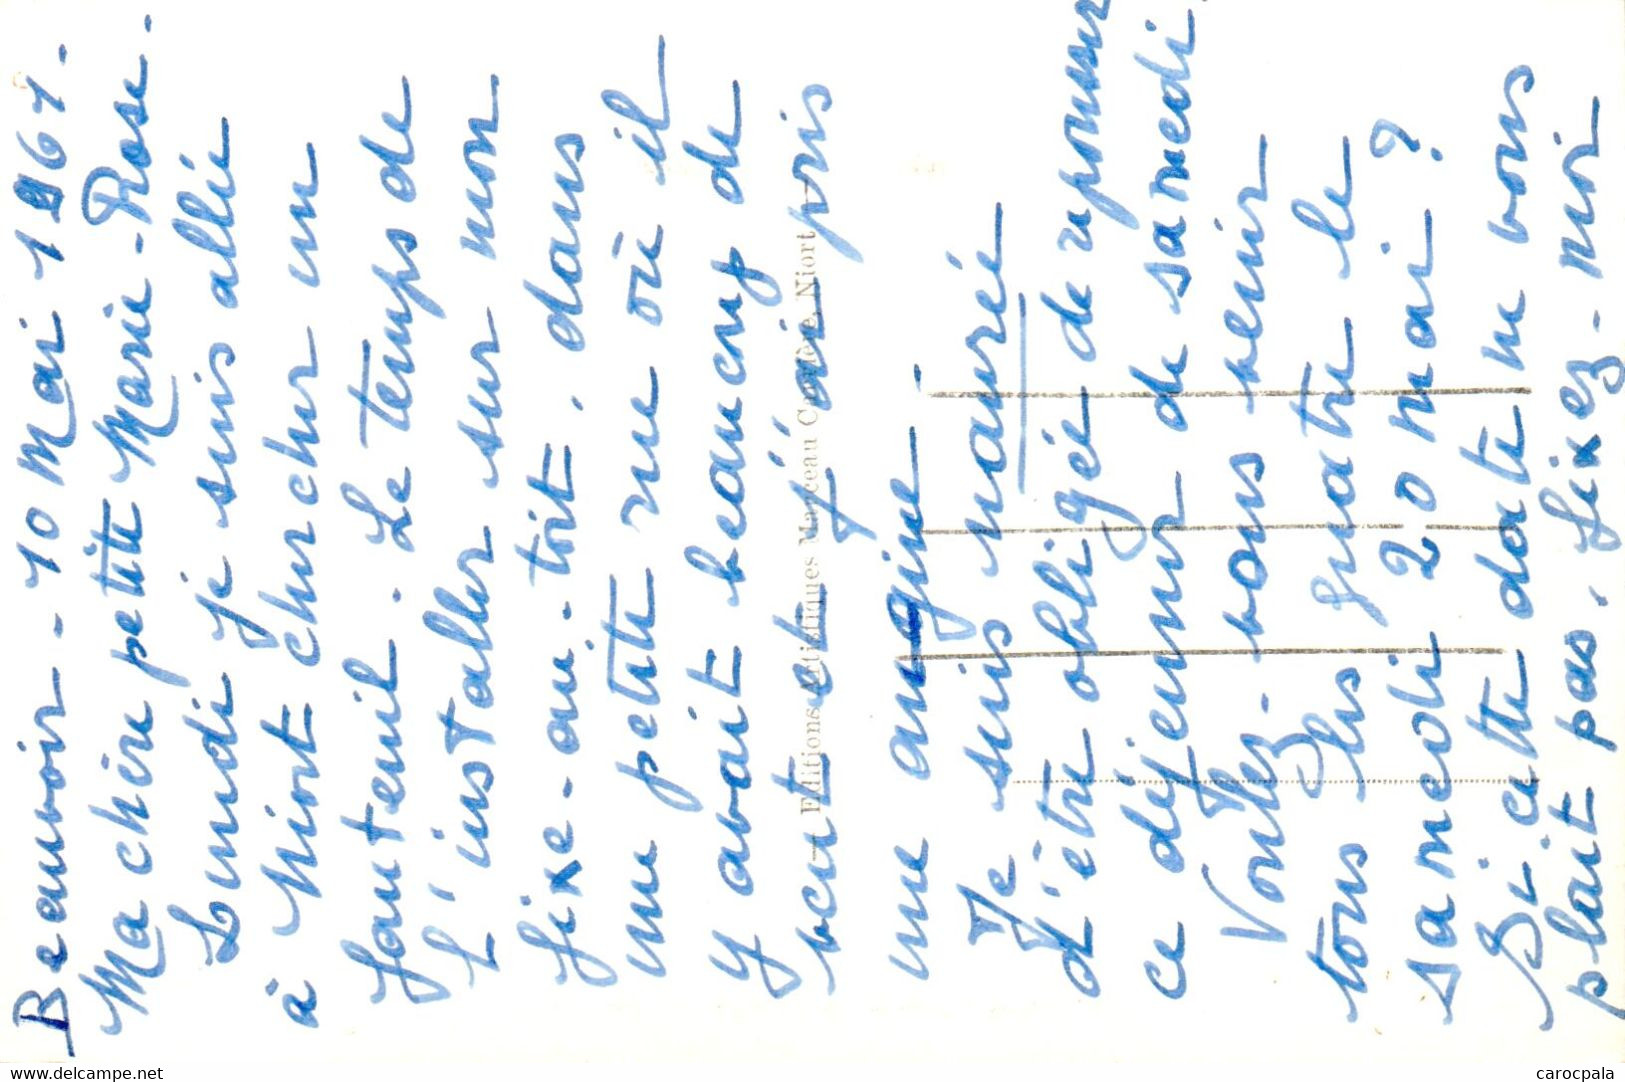 Beauvoir - 10 Mai 1967.
Ma chère petite Marie-Rose.
Lundi je suis allée
à Niort chercher un
fauteuil. Le temps de
l'installer sur mon
fixe-au-toit, dans
une petite rue où il
y avait beaucoup de
vent et j'ai pris
une angine.
Je suis navrée
d'être obligée de repousser
ce déjeuner de samedi.
Voulez-vous venir
tous les quatre le
samedi 20 mai ?
Si cette date ne vous
plait pas, fixez-moi
Editions Artistiques Marceau Carrière, Niort
delcampe.net
carocpala